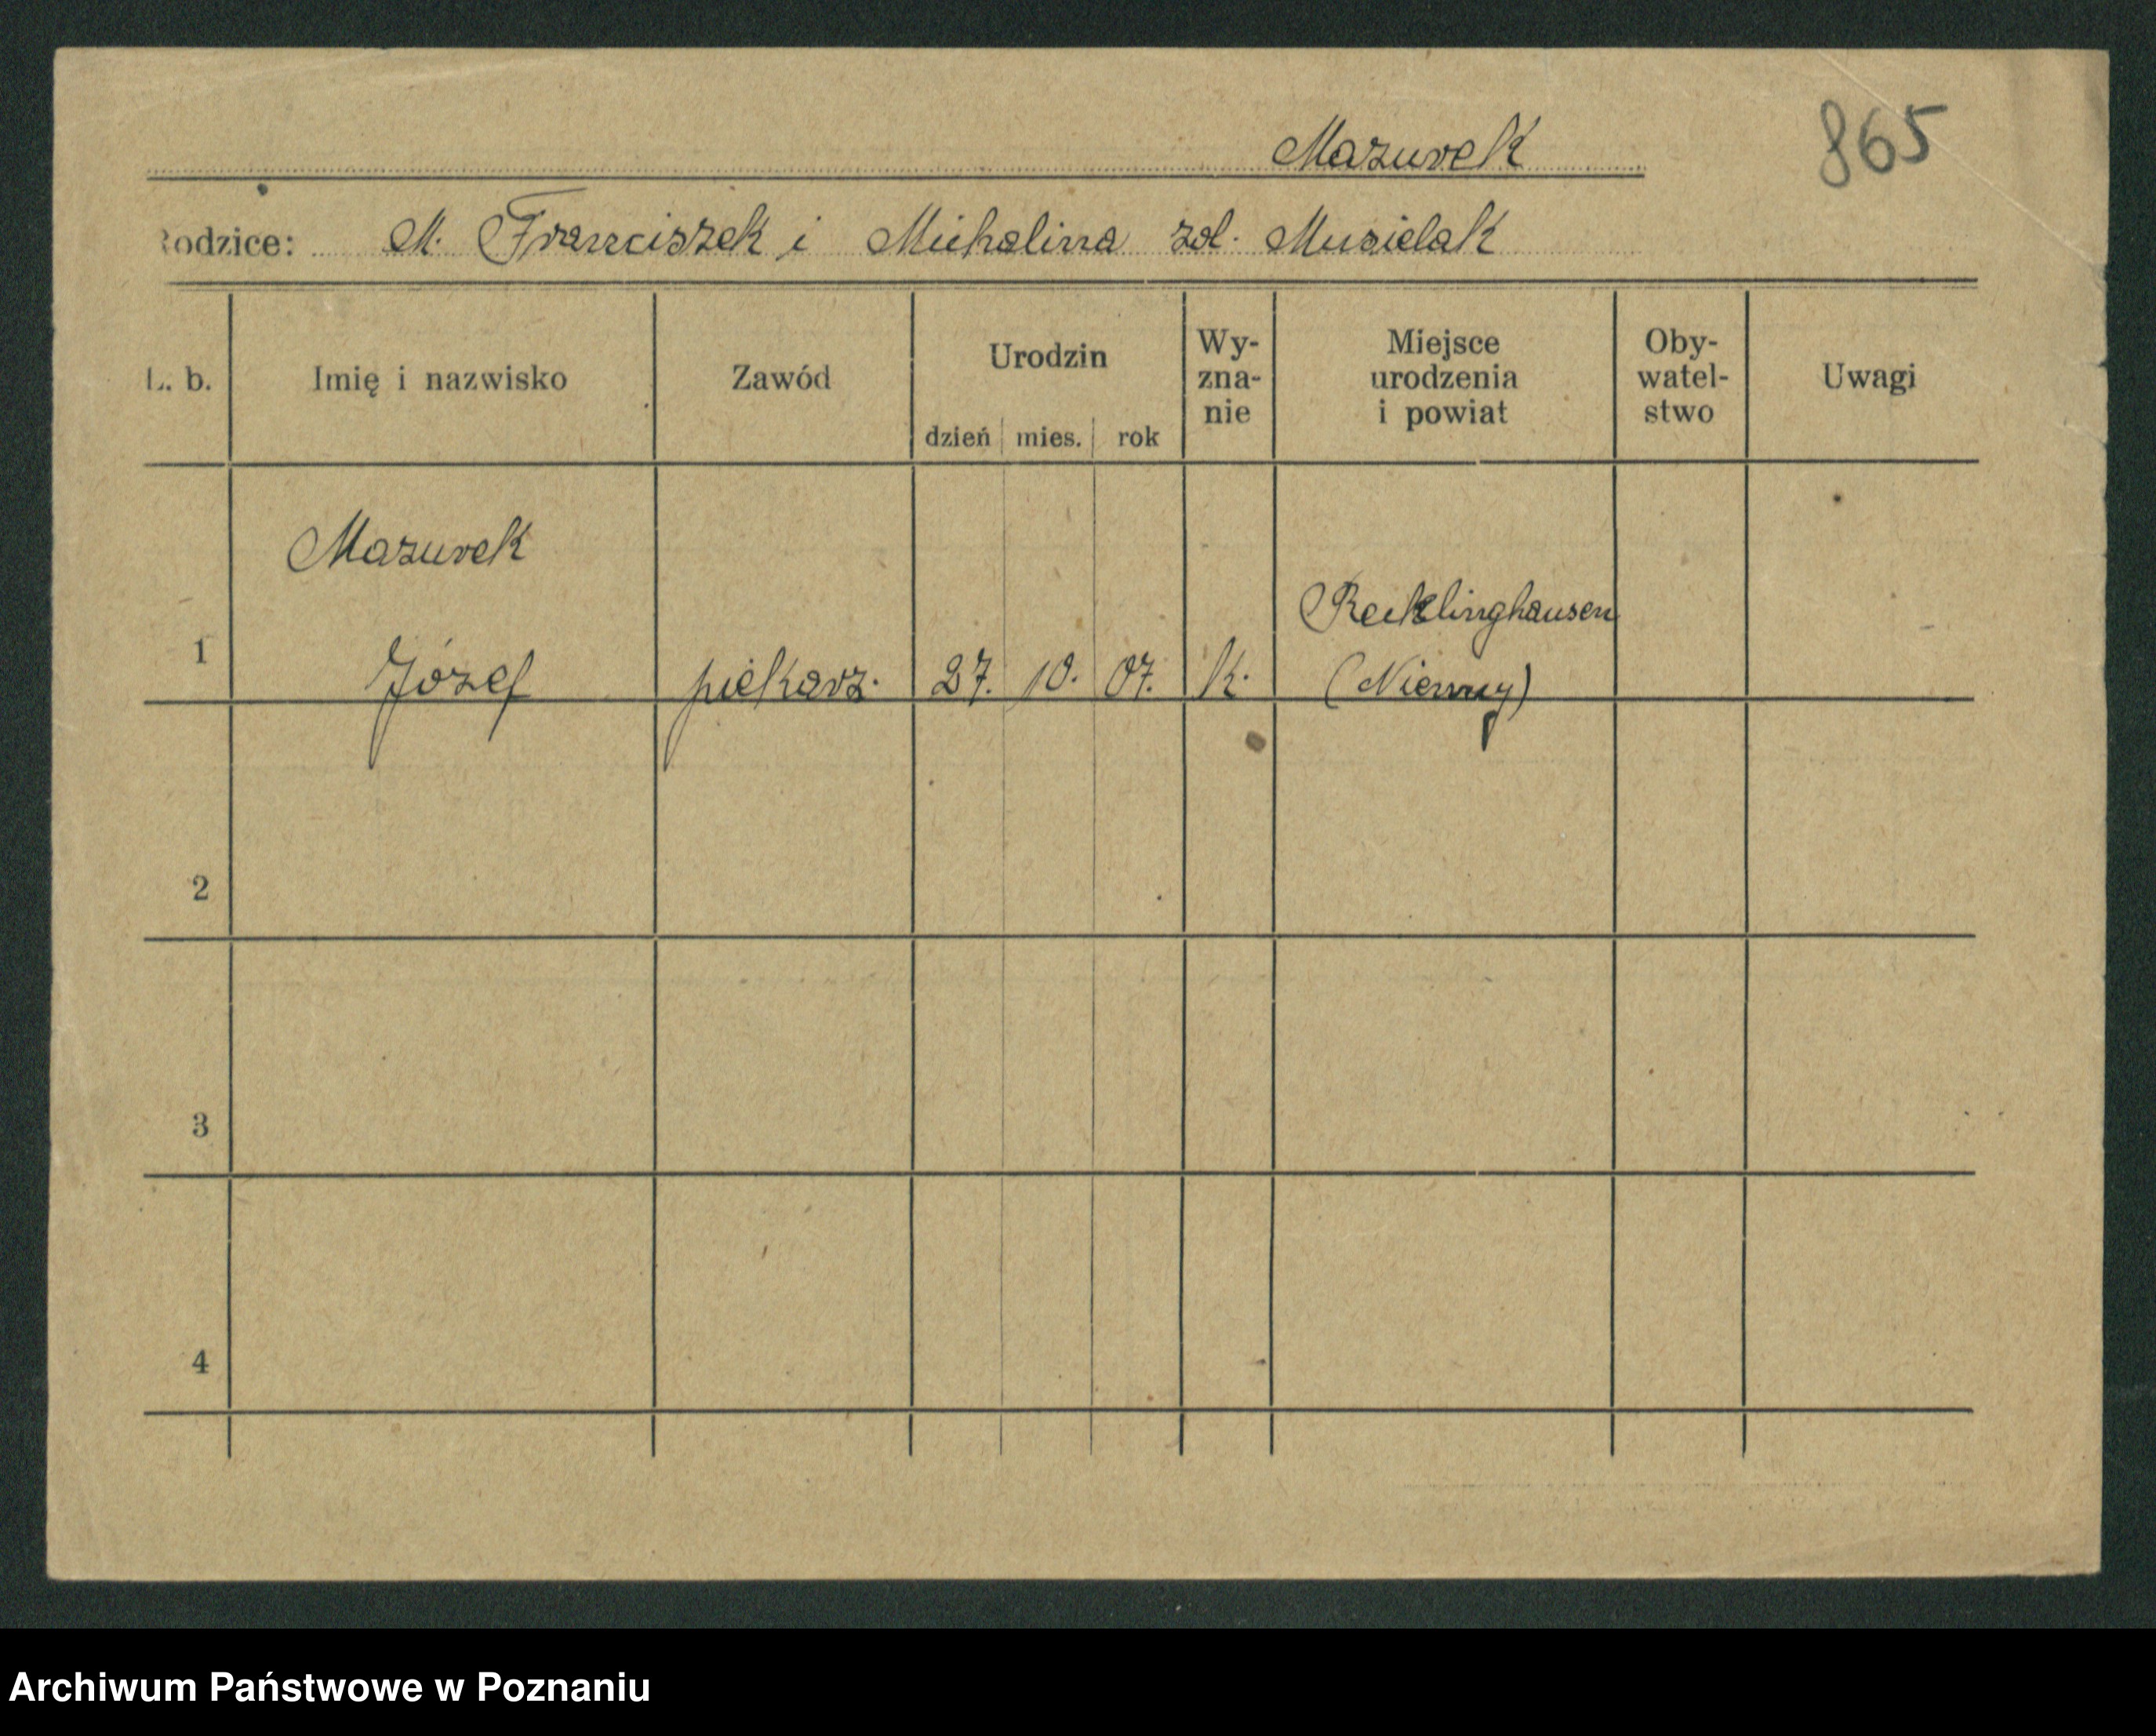 Mazurek
865
Rodzice: M. Franciszek i Michalina zd. Musielak
L. b.
Imię i nazwisko
Zawód
Urodzin
dzień mies. rok
Wy-
zna-
nie
Miejsce
urodzenia
i powiat
Oby-
watel-
stwo
Uwagi
Mazurek
1 Józef piekarz. 27. 10. 07. k. Recklinghausen
(Niemcy)
2
3
4
Archiwum Państwowe w Poznaniu